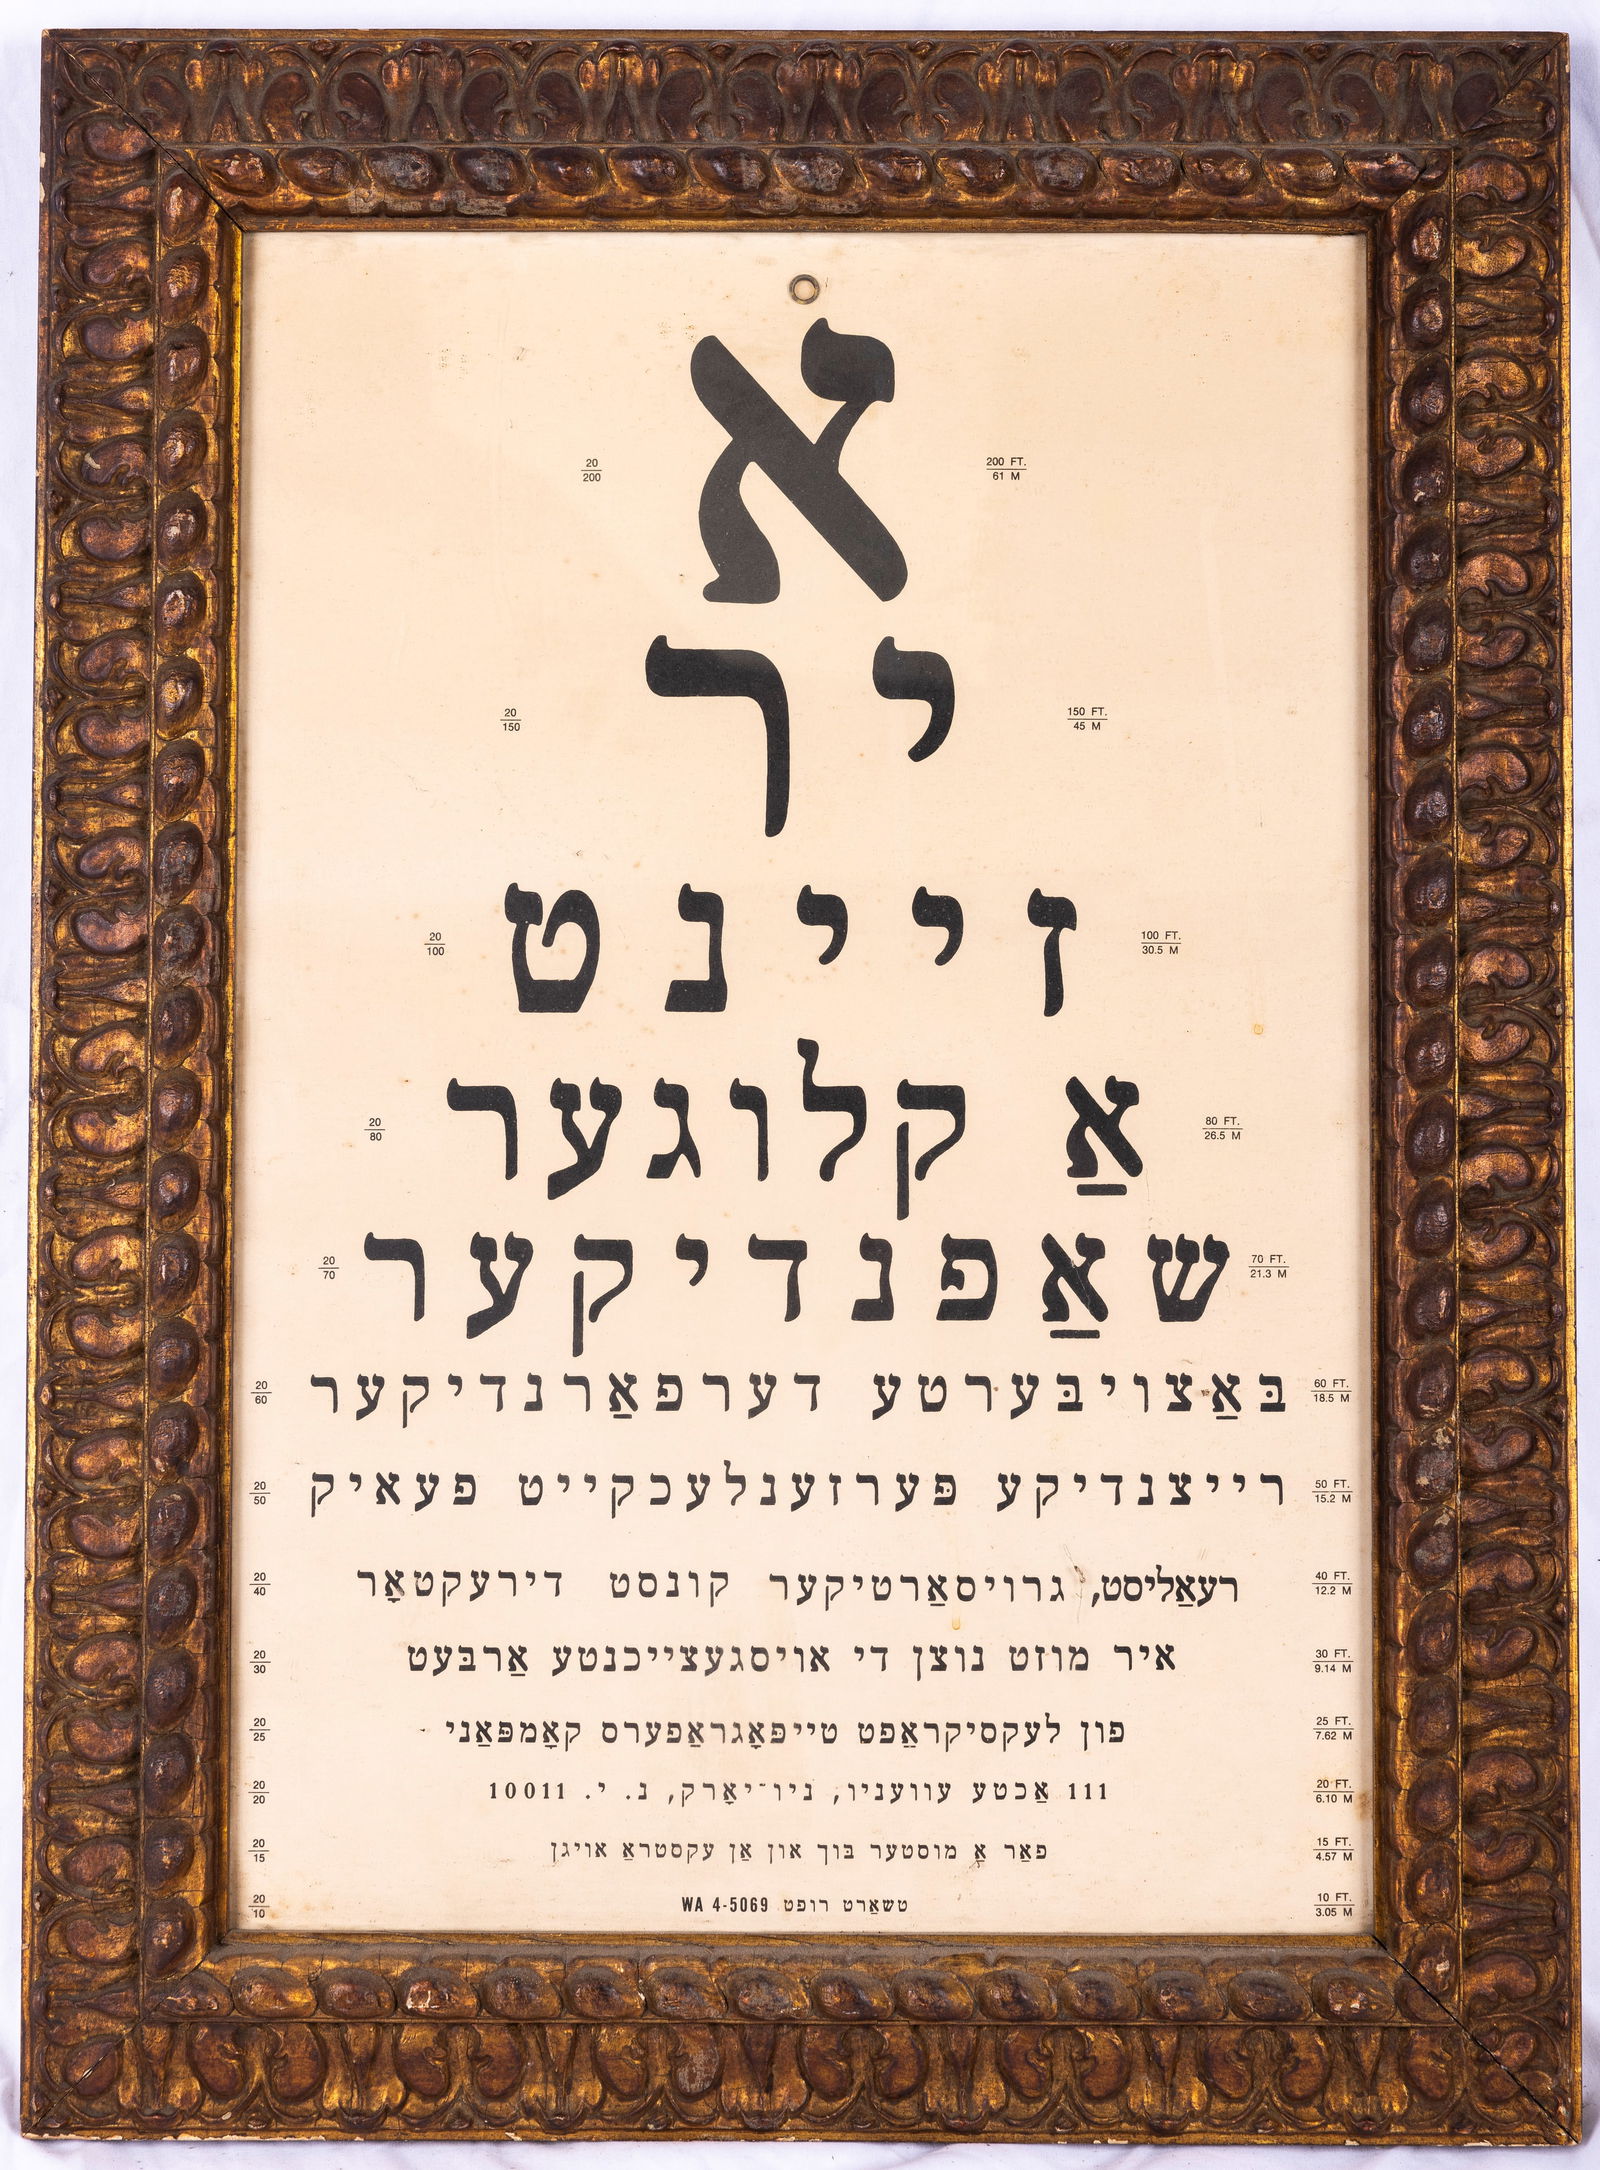 א
20/200 200 FT. 61 M
יר
20/150 150 FT. 45 M
זיינט
20/100 100 FT. 30.5 M
אַ קלוגער
20/80 80 FT. 26.5 M
שאַפנדיקער
20/70 70 FT. 21.3 M
באַצויבערטע דערפאַרנדיקער
20/60 60 FT. 18.5 M
רייצנדיקע פּערזענלעכקייט פעאיק
20/50 50 FT. 15.2 M
רעאַליסט, גרויסאַרטיקער קונסט דירעקטאָר
20/40 40 FT. 12.2 M
איר מוזט נוצן די אויסגעצייכנטע אַרבעט
20/30 30 FT. 9.14 M
פון לעקסיקראַפט טייפּאָגראַפערס קאָמפּאַני
20/25 25 FT. 7.62 M
111 אַכטע עוועניו, ניו־יאָרק, נ. י. 10011
20/20 20 FT. 6.10 M
פאַר אָ מוסטער בוך און אַן עקסטראַ אויגן
20/15 15 FT. 4.57 M
טשאַרט רופט WA 4-5069
20/10 10 FT. 3.05 M